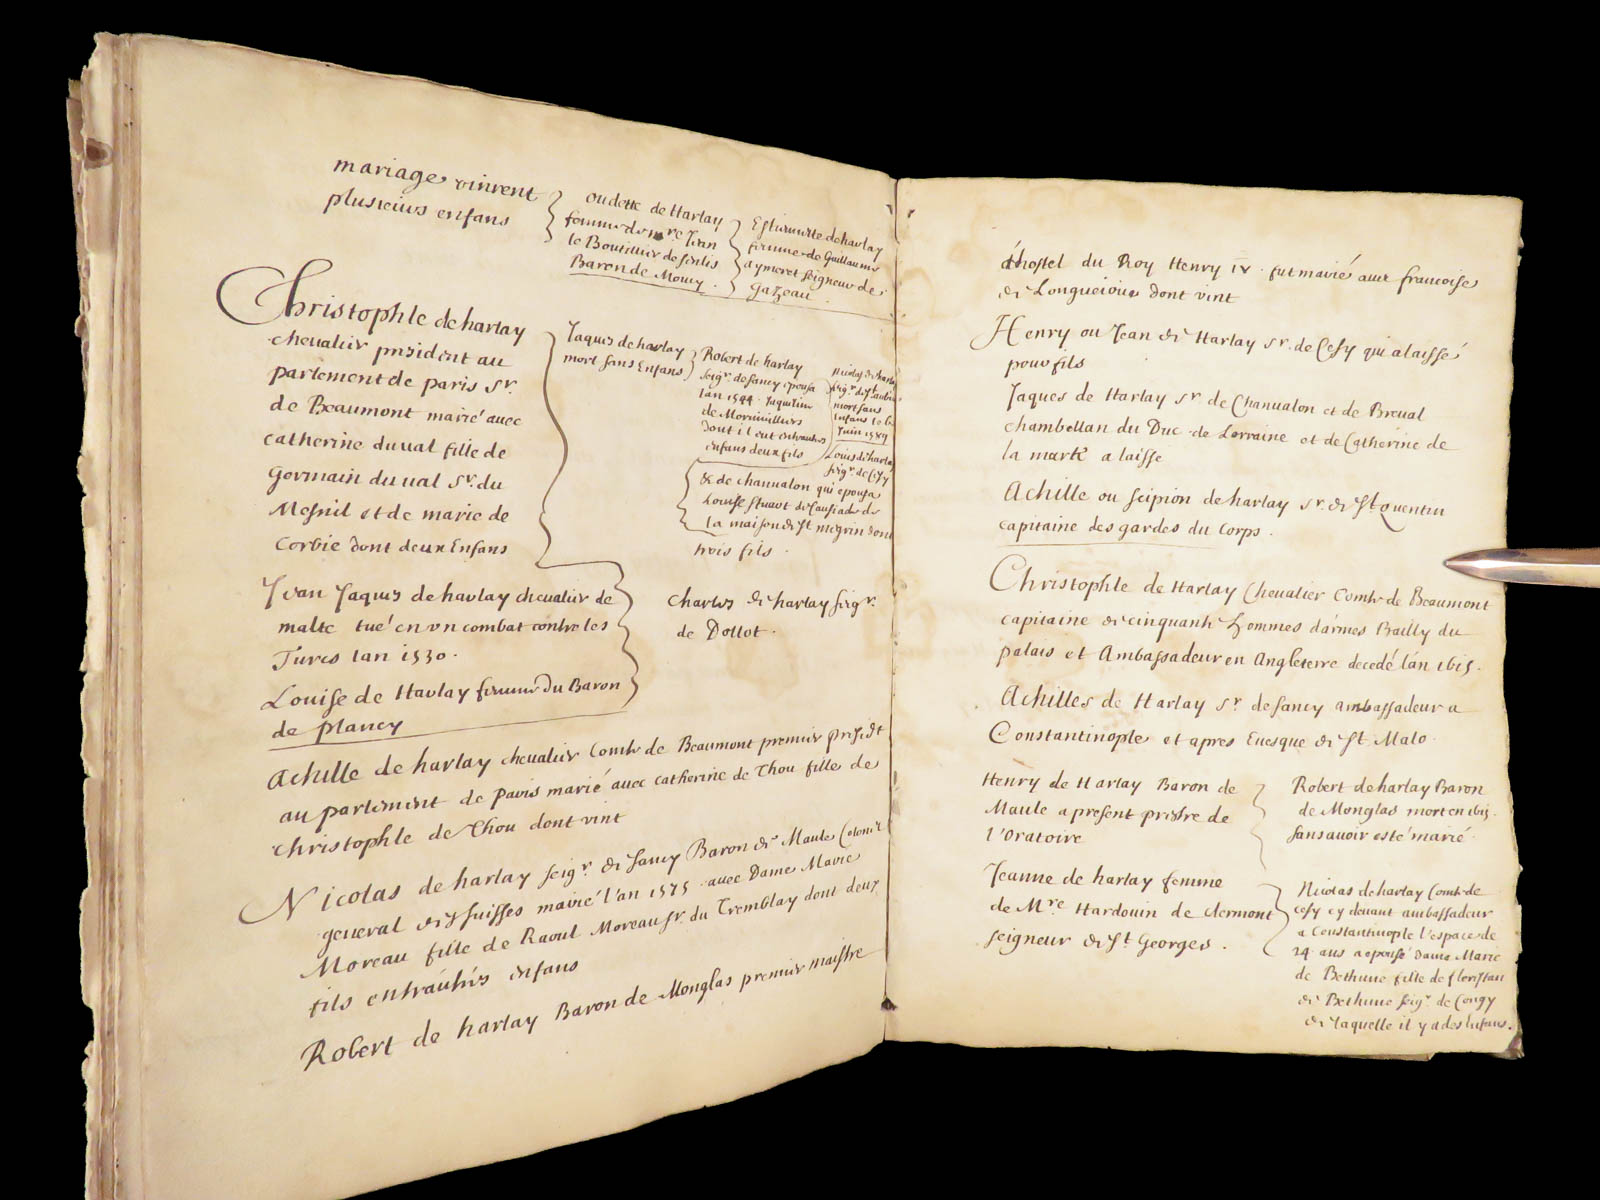 mariage vinrent
plusieurs enfans
oudette de Harlay
femme de mre Jean
le Boutillier de senlis
Baron de Moucy .
Estiennette de harlay
femme de Guillaume
aymeret seigneur de
Gazeau
Christophle de harlay
cheualier president au
parlement de paris sr.
de Beaumont marié auec
catherine du ual fille de
Germain du ual sr. du
Mesnil et de marie de
Corbie dont deux Enfans
Jaques de harlay
mort sans Enfans
Robert de harlay
seigr. de sancy epousa
lan 1544 Jaqueline
de Morinvilliers
dont il eut entrautres
enfans deux fils
Nicolas de harlay
seigr. de st. aubin
mort sans
enfans le
Juin 1587
Louis de harlay
seigr. de Cesy
& de chanualon qui epousa
Louise stuart de
la maison de st megrin dont
trois fils .
Jean Jaques de harlay cheualier de
malte tué en un combat contre les
Turcs lan 1530.
Louise de Harlay femme du Baron
de plancy
Charles de harlay seigr.
de Dollot .
Achille de harlay cheualier Comte de Beaumont premier presidt
au parlement de paris marié auec catherine de Thou fille de
christophle de Thou dont vint
Nicolas de harlay seigr. de sancy Baron de Maule Colonel
general des suisses marié l'an 1575 . auec Dame Marie
Moreau fille de Raoul Moreau sr. du Tremblay dont deux
fils entráutrés enfans
Robert de harlay Baron de Monglas premier maistre
d'hostel du Roy Henry IV . fut marié auec francoise
de Longueioue dont vint
Henry ou Jean de Harlay sr. de Cesy qui a laissé
pour fils
Jaques de Harlay sr de Chanualon et de Breual
chambellan du Duc de Lorraine et de Catherine de
la mark a laisse
Achille ou scipion de harlay sr. de st Quentin
capitaine des gardes du corps .
Christophle de Harlay Cheualier Comte de Beaumont
capitaine de cinquante hommes dármes Bailly du
palais et Ambassadeur en Angleterre decedé lán 1615 .
Achilles de Harlay sr. de sancy ambassadeur a
Constantinople et apres Euesque de st Malo .
Henry de Harlay Baron de
Maule a present prestre de
l'Oratoire
Robert de harlay Baron
de Monglas mort en 1615 .
sans auoir esté marié .
Jeanne de harlay femme
de Mre Hardouin de clermont
seigneur de st. Georges .
Nicolas de harlay Comte de
cesy cy deuant ambassadeur
a Constantinople l'espace de
24 ans a epousé Dame Marie
de Bethune fille de florestan
de Bethune seigr. de Congy
de laquelle il y a des Enfans .